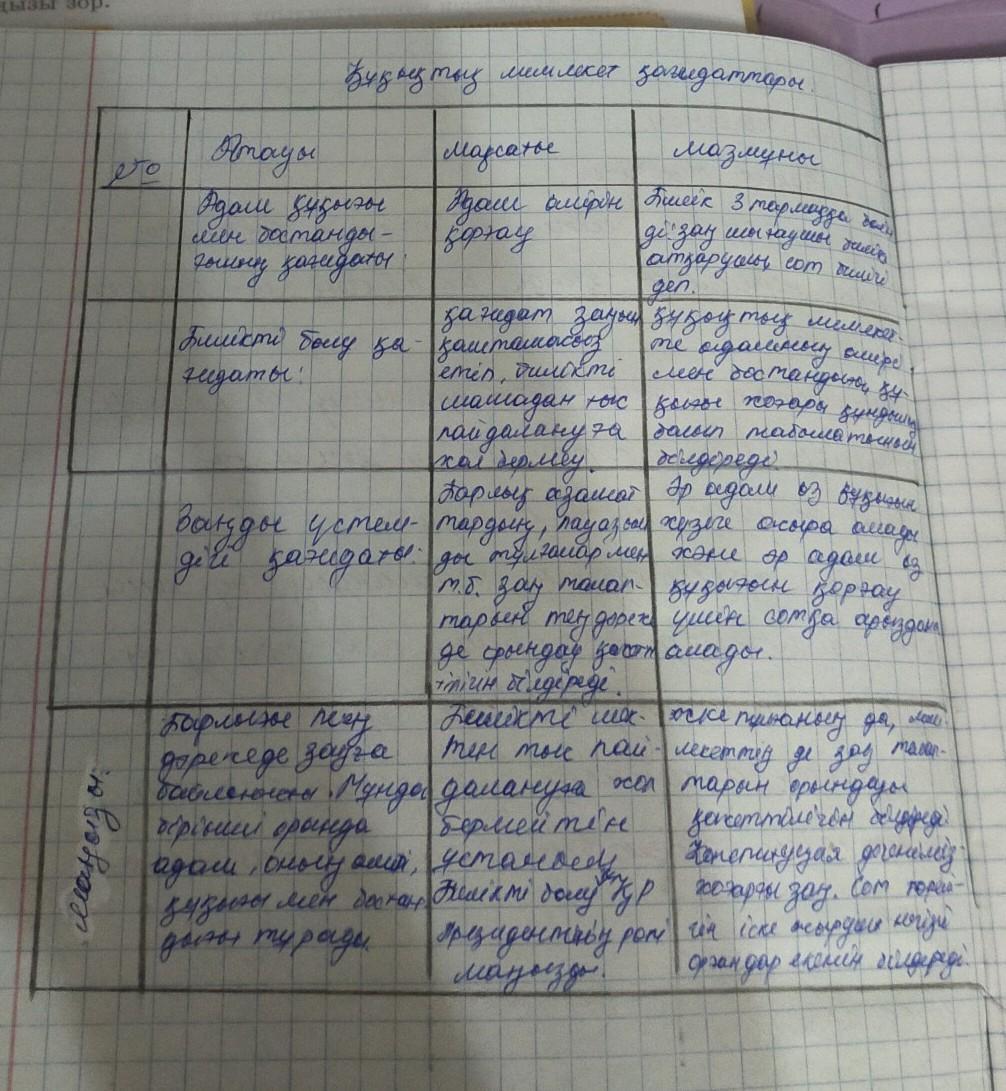 ңызы зор.
Құқықтық мемлекет қағидаттары.
№
Атауы
Мақсаты
Мазмұны
Адам құқығы
мен бостанды-
ғының қағидаты.
Адам өмірін
қорғау
Билік 3 тармаққа бөлін
ді: заң шығаушы билік
атқарушы, сот билігі
деп.
Билікті бөлу қа-
ғидаты.
қағидат заңын
етіп, билікті
шамадан тыс
пайдалануға
жол бермеу.
құқықтық мемлекет-
те адамның өмірі
мен бостандығы, құ-
қығы жоғары құндылық
болып табылатынын
білдіреді
Заңды үстем-
дігі қағидаты.
Барлық азамат
тардың, лауазым
ды тұлғалар мен
т.б. заң талап-
тарын тең дәреже
де орындау қажет
тілігін білдіреді.
Әр адам өз құқығын
жүзеге асыра алады
және әр адам өз
құқығын қорғау
үшін сотқа арыздана
алады.
Маңызды:
Барлығы тең
дәрежеде заңға
бағынышты. Мұнда
бірінші орында
адам, оның өмірі,
құқығы мен бостан
дығы тұрады.
Билікті шек-
тен тыс пай-
далануға жол
бермейтін
ұстаным
Билікті бөлу үшін ҚР
Президентінің рөлі
маңызды.
жеке тұлғаның да, мем-
лекеттің де заң талап-
тарын орындауы
қажеттілігін білдіреді
Конституция дегеніміз
жоғарғы заң. Сот төрелі-
гін іске асырудың негізгі
органдар екенін білдіреді.